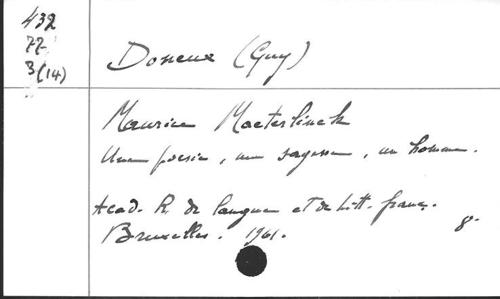 432
77
3(14)
Doneux (Guy)
Maurice Maeterlinck
Une poésie, une sagesse, un homme.
Acad. R. de langue et de litt. franç.
Bruxelles. 1961. 8º.